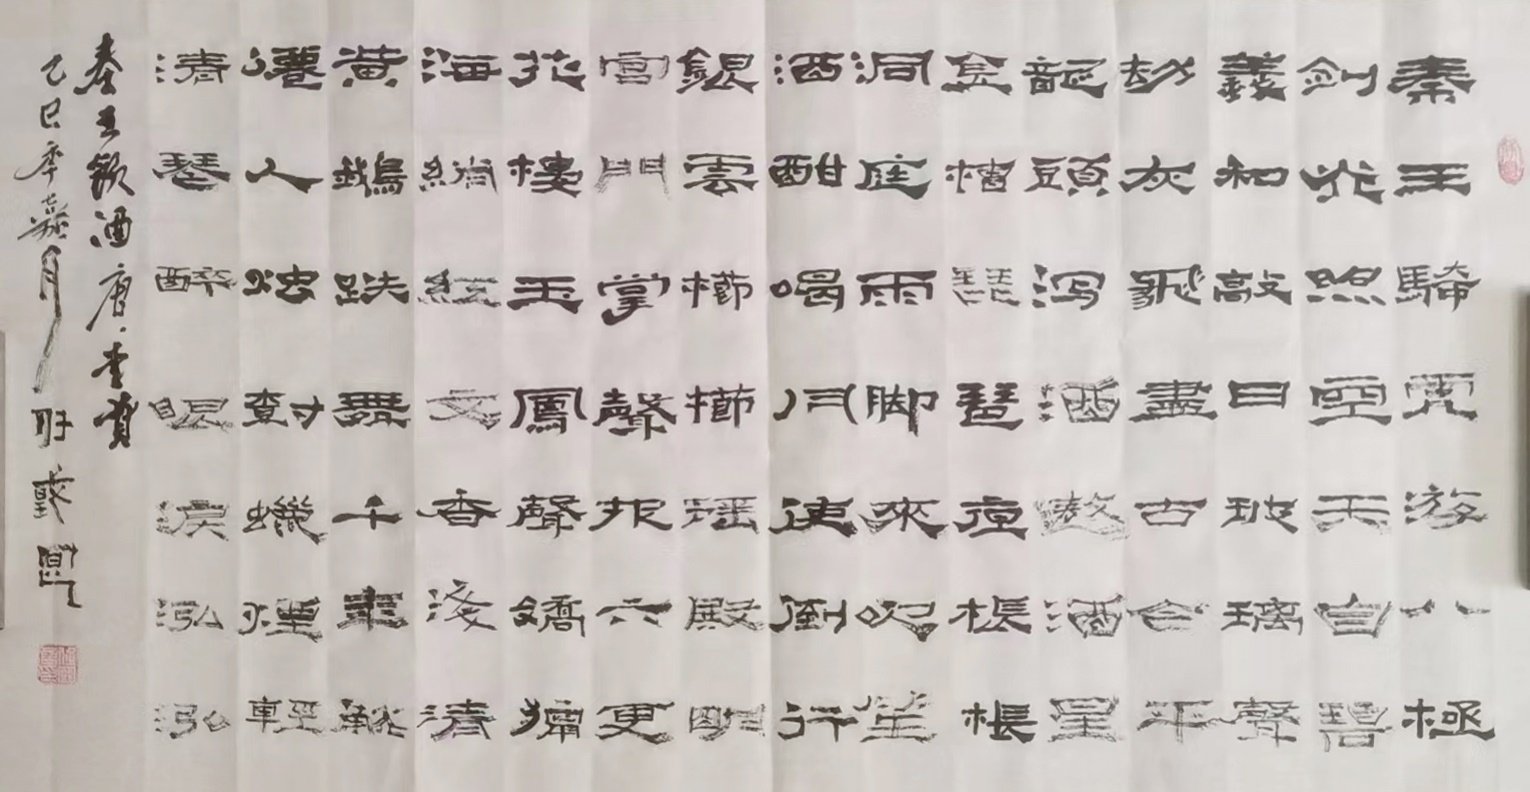 秦王騎虎游八極
劍光照空天自碧
羲和敲日玻璃聲
劫灰飛盡古今平
龍頭泻酒邀酒星
金槽琵琶夜棖棖
洞庭雨脚來吹笙
酒酣喝月使倒行
銀雲櫛櫛瑶殿明
宮門掌聲报六更
花樓玉鳳聲嬌獰
海綃紅文香淺清
黃鵝跌舞千年觥
僊人烛樹蠟煙輕
清琴醉眼淚泓泓
秦王飲酒 唐·李賀
乙巳年嘉月